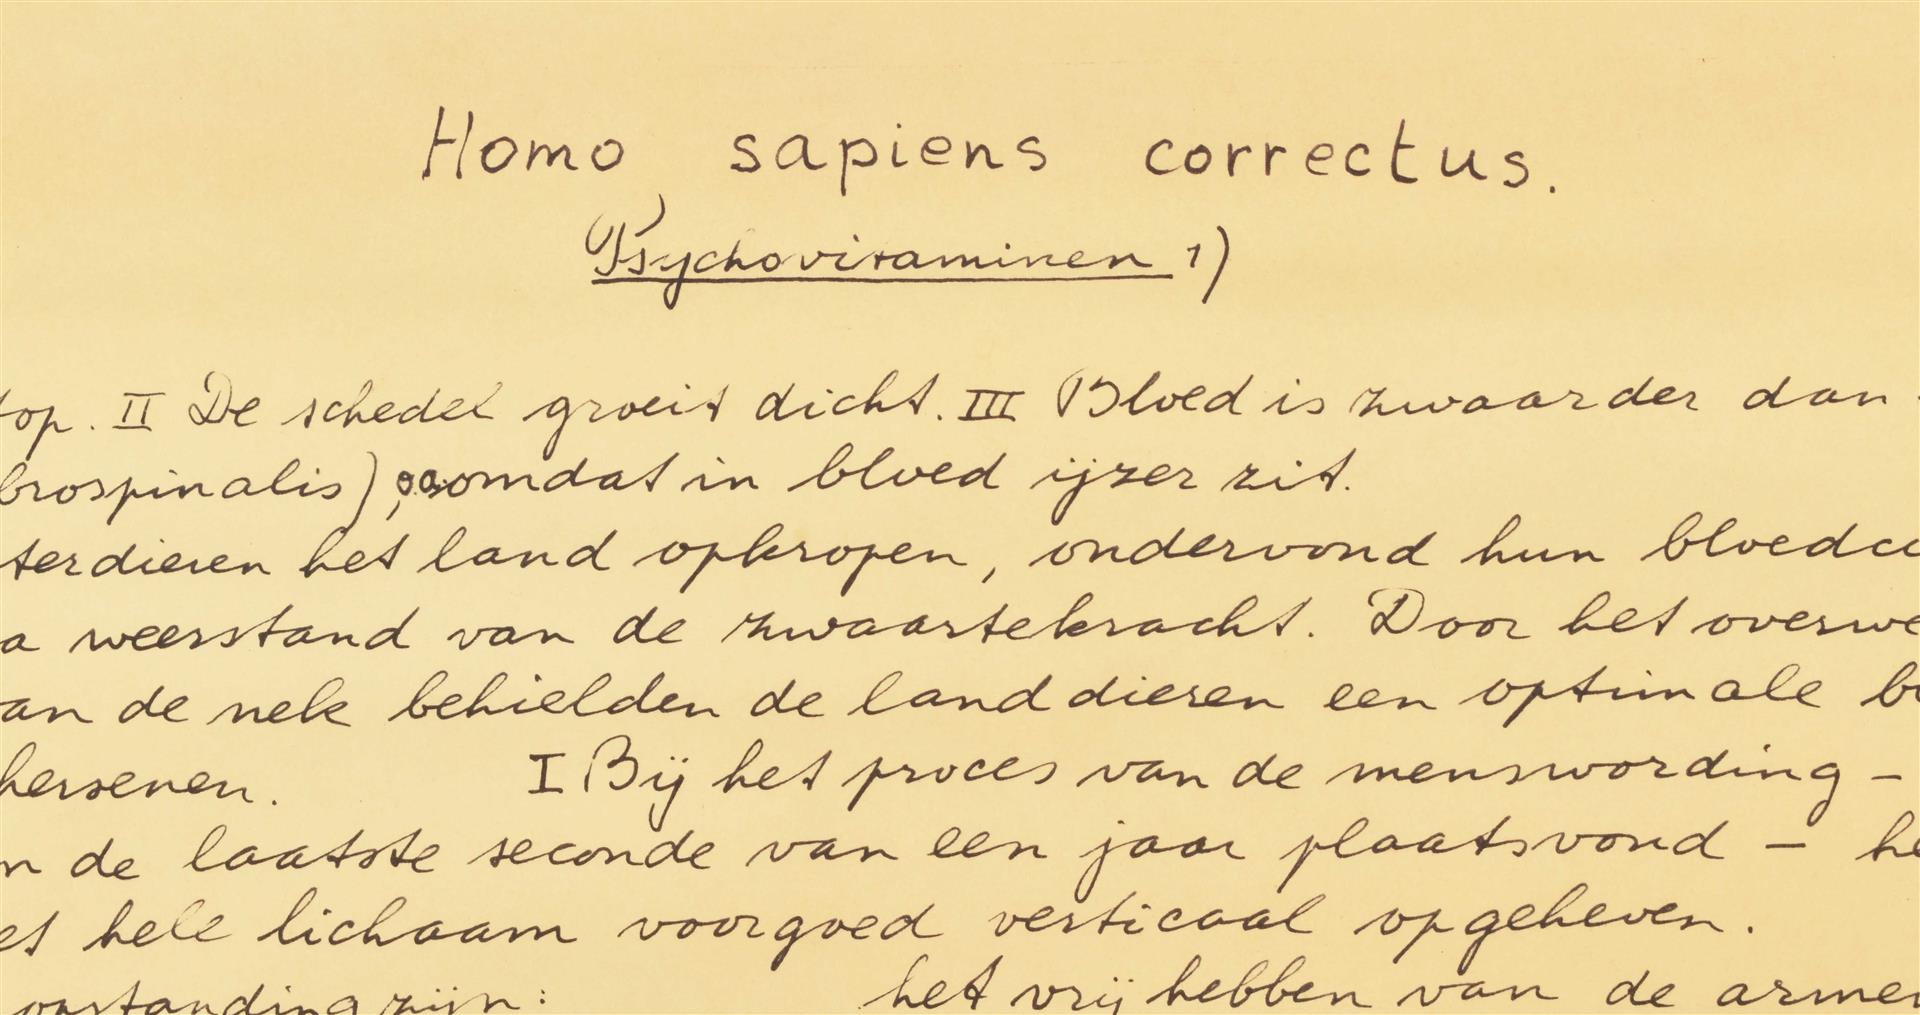 Homo sapiens correctus.
Psychovitaminen 1)
op. II De schedel groeit dicht. III Bloed is zwaarder dan
brospinalis), omdat in bloed ijzer zit.
terdieren het land opkropen, ondervond hun bloedci
a weerstand van de zwaartekracht. Door het overwe
an de nek behielden de landdieren een optimale b
hersenen. I Bij het proces van de menswording -
n de laatste seconde van een jaar plaatsvond - he
et hele lichaam voorgoed verticaal opgeheven.
opstanding zijn: het vrij hebben van de armen